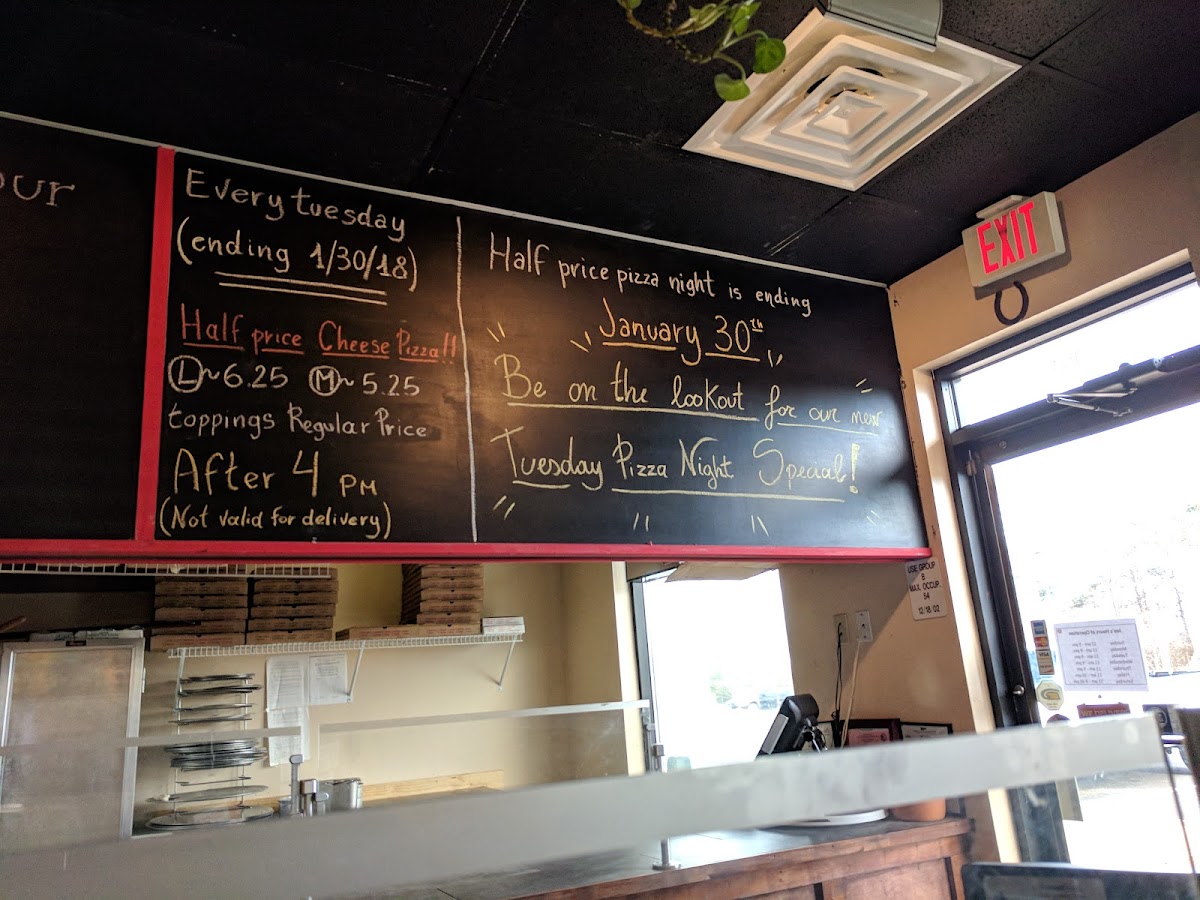 our
Every tuesday
(ending 1/30/18)
Half price Cheese Pizza!!
L~6.25 M~5.25
toppings Regular Price
After 4 PM
(Not valid for delivery)
Half price pizza night is ending
January 30th
Be on the lookout for our new
Tuesday Pizza Night Special!
EXIT
USE GROUP
B
MAX. OCCUP.
54
12/18/02